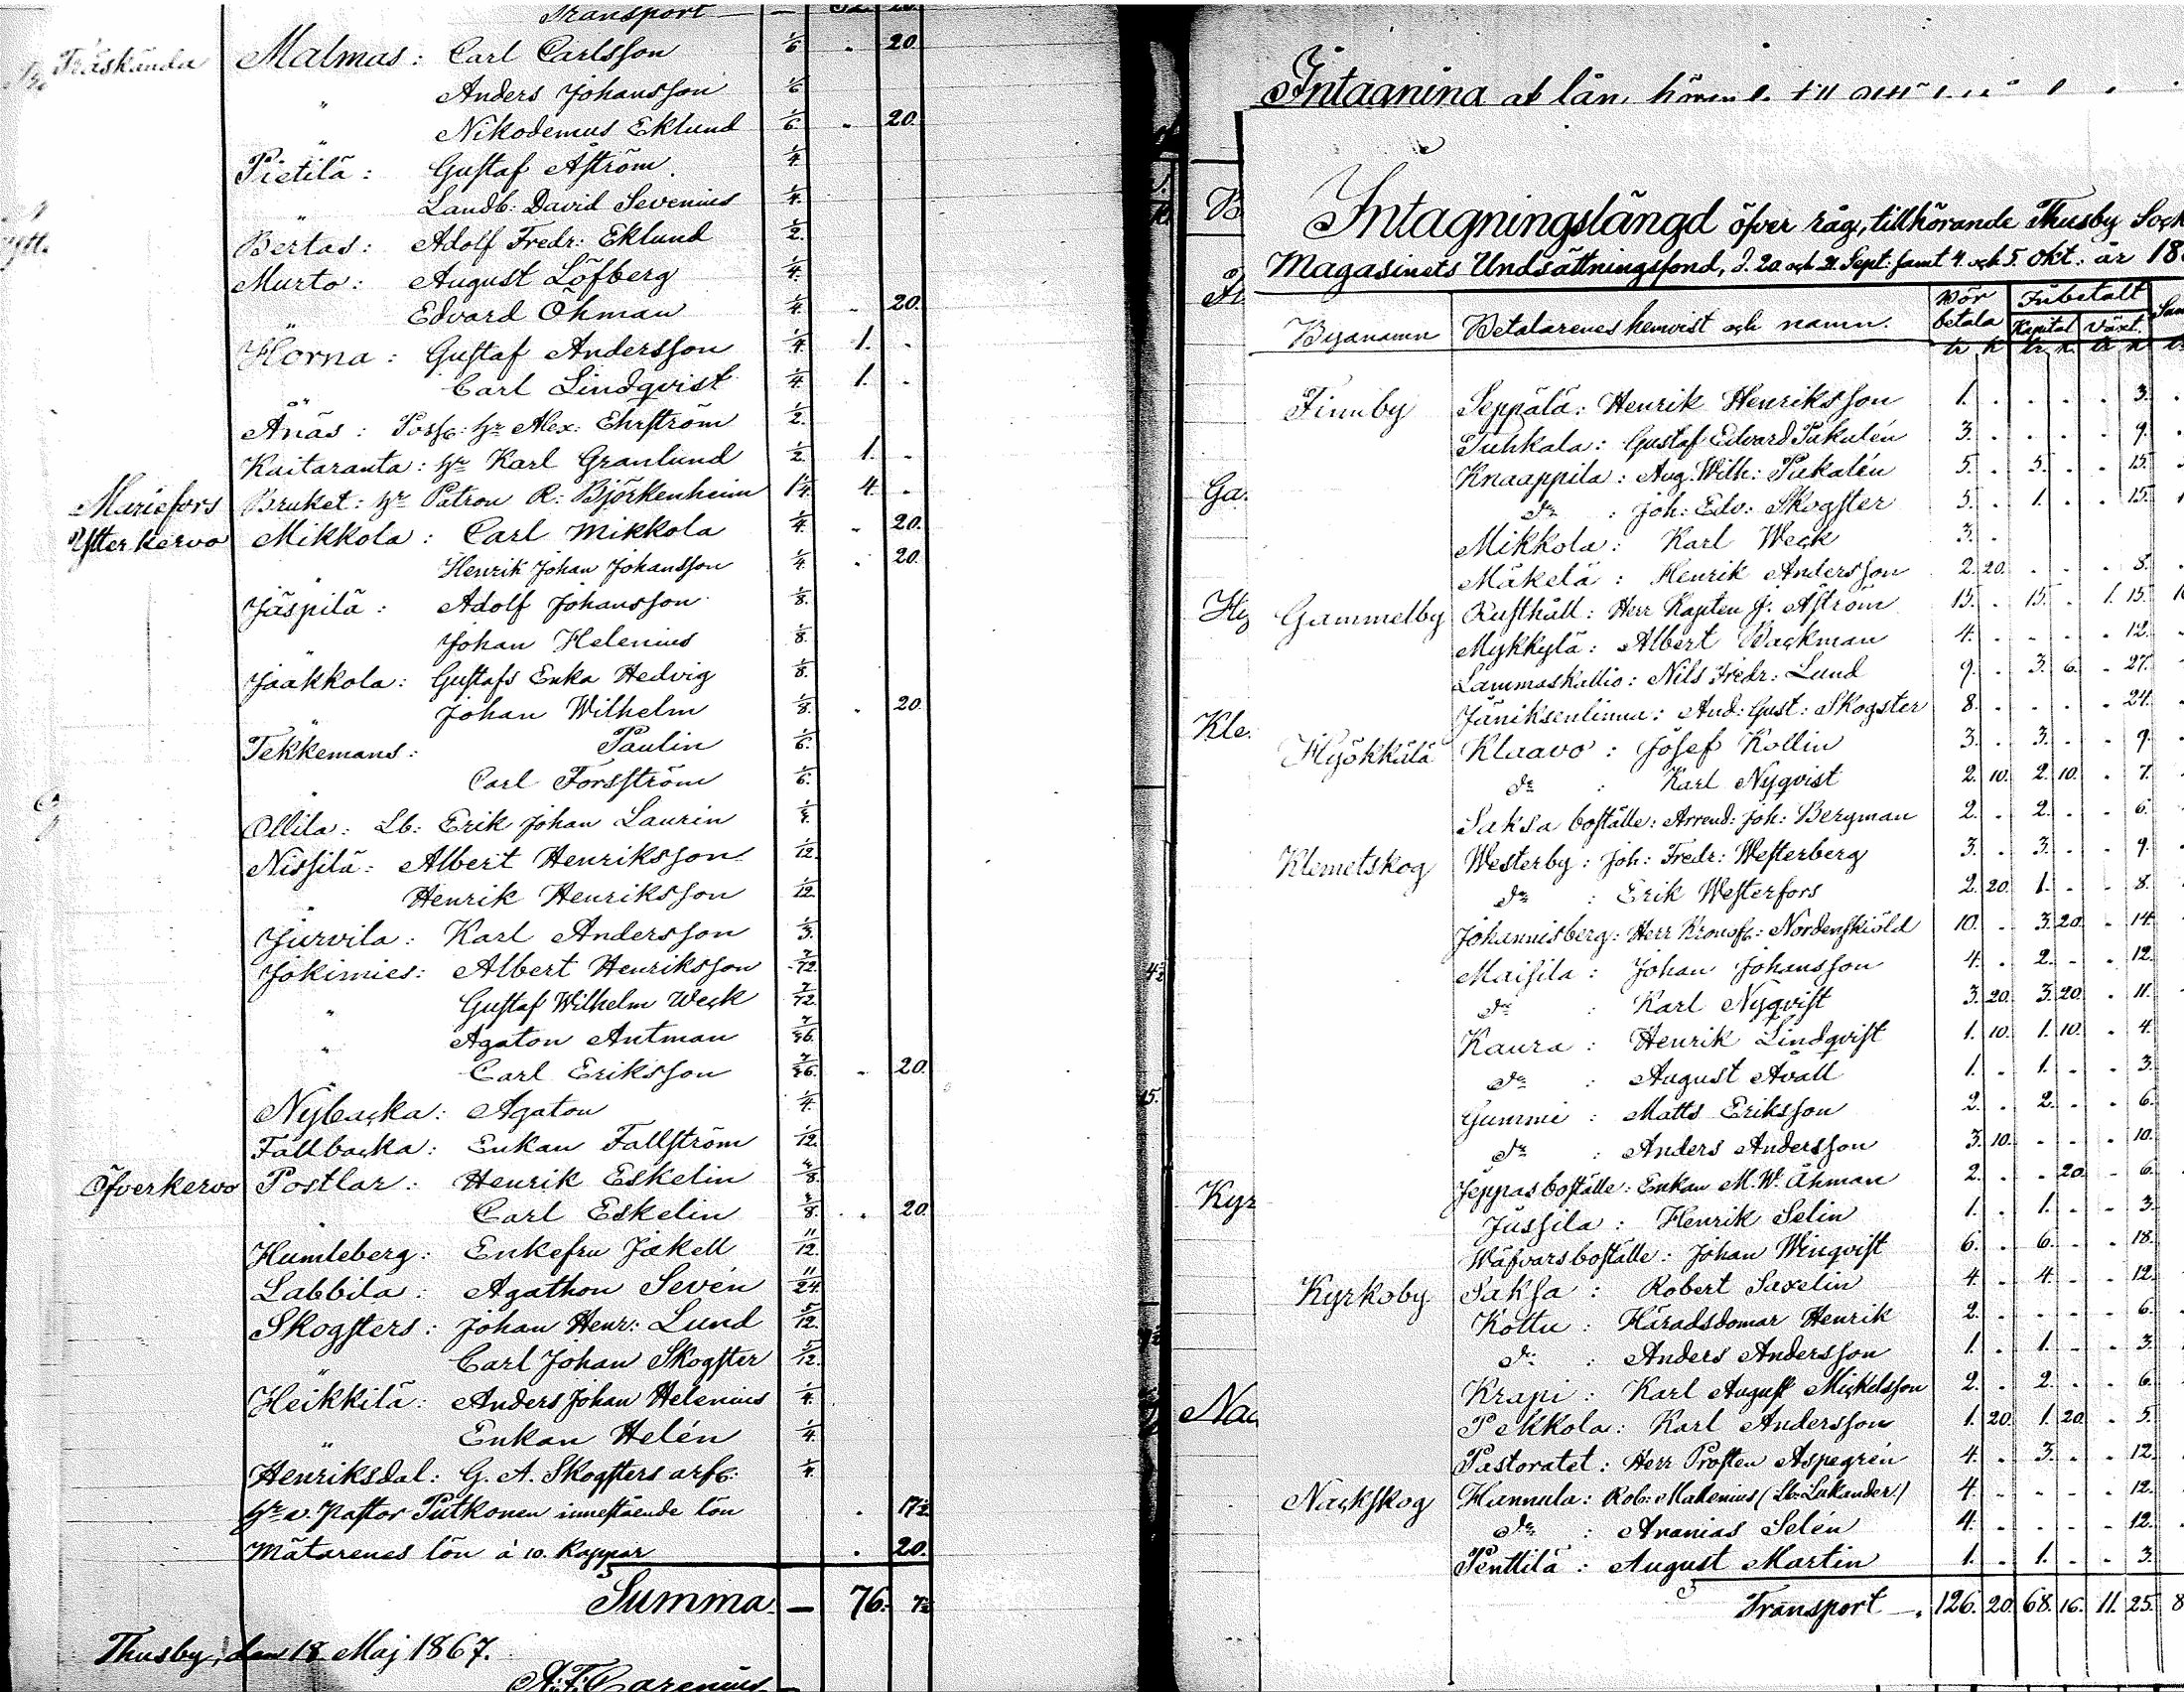 Transport —
Träskända Malmas: Carl Carlsson 1/6 . 20.
" Anders Johansson 1/6
" Nikodemus Eklund 1/6 . 20.
Pietilä: Gustaf Åström 1/4.
" Landb: David Sevenius 1/4.
Bertas: Adolf Fredr: Eklund 1/2.
Murto: August Löfberg 1/4.
Edvard Öhman 1/4. . 20.
Horna: Gustaf Andersson 1/4. 1. .
" Carl Lindqvist 1/4. 1. .
Ånäs: Poss: Hr Alex: Ehrström 1/2.
Kaitaranta: Hr Karl Granlund 1/2. 1. .
Mariefors Bruket: Hr Patron R: Björkenheim 1 1/4. 4. .
Ytterkervo Mikkola: Carl Mikkola 1/4. . 20.
" Henrik Johan Johansson 1/4. . 20.
Jäspilä: Adolf Johansson 1/8.
" Johan Helenius 1/8.
Jaakkola: Gustafs Enka Hedvig 1/8.
" Johan Wilhelm 1/8. . 20.
Tekkemans: Paulin 1/6.
" Carl Forsström 1/6.
Ollila: Lb: Erik Johan Laurin
Nissilä: Albert Henriksson 1/12.
" Henrik Henriksson 1/12.
Jurvila: Karl Andersson 1/3.
Jokimies: Albert Henriksson 7/72.
" Gustaf Wilhelm Weck 7/72.
" Agaton Antman
Carl Eriksson . 20.
Nybacka: Agaton 1/4.
Fallbacka: Enkan Fallström 1/12.
Öfverkervo Postlar: Henrik Eskelin
" Carl Eskelin . 20.
Humleberg: Enkefru Jakell 11/12.
Labbila: Agathon Sevén 11/24.
Skogsters: Johan Henr: Lund 5/12.
" Carl Johan Skogster 5/12.
Heikkilä: Anders Johan Helenius 1/4.
" Enkan Helén 1/4.
Henriksdal: G. A. Skogsters arfv: 1/4.
Hr v. Pastor Putkonen innestående lön . 17 1/2
Mätarenes lön à 10. Kappar . 20.
Summa — 76. 7 1/2
Thusby, den 18 Maj 1867.
Intagning af lån,
Intagningslängd öfver råg, tillhörande Thusby Sock
Magasinets Undsättningsfond, d. 20 och 21 Sept: samt 4 och 5 Okt: år 18
Byanamn Betalarenes hemvist och namn. Bör betala Inbetalt Sum
Kapital Växt.
tr k tr k. tr k
Finnby Seppälä: Henrik Henriksson 1. . . . . 3.
Tuhkala: Gustaf Edvard Tukulén 3. . . . . 9.
Knaappila: Aug. Wilh: Tukalén 5. . 5. . . 15.
do : Joh: Edv: Skogster 5. . 1. . . 15.
Mikkola: Karl Weck 3. .
Mäkelä: Henrik Andersson 2. 20. . . . 8.
Gammelby Rusthåll: Herr Kapten J. Åström 15. . 15. . 1. 15.
Mykkylä: Albert Backman 4. . . . . 12.
Lammaskallio: Nils Fredr: Lund 9. . 3. 6. . 27.
Jäniksenlinna: And: Gust: Skogster 8. . . . . 24.
Hyökkälä Klaavo: Josef Kollin 3. . 3. . . 9.
do : Karl Nyqvist 2. 10. 2. 10. . 7.
Saksa boställe: Arrend: Joh: Bergman 2. . 2. . . 6.
Klemetskog Westerby: Joh: Fredr: Westerberg 3. . 3. . . 9.
do : Erik Westerfors 2. 20. 1. . . 8.
Johannisberg: Herr Kronof: Nordenskiöld 10. . 3. 20. . 14.
Maisila: Johan Johansson 4. . 2. . . 12.
do : Karl Nyqvist 3. 20. 3. 20. . 11.
Kaura: Henrik Lindqvist 1. 10. 1. 10. . 4.
do : August Avall 1. . 1. . . 3.
Gummi: Matts Eriksson 2. . 2. . . 6.
do : Anders Andersson 3. 10. . . . 10.
Jeppas boställe: Enkan M. W. Åhman 2. . . 20. . 6.
Jussila: Henrik Selin 1. . 1. . . 3.
Wäfvars boställe: Johan Winqvist 6. . 6. . . 18.
Kyrkoby Saksa: Robert Saxelin 4. . 4. . . 12.
Kottu: Häradsdomar Henrik 2. . . . . 6.
do : Anders Andersson 1. . 1. . . 3.
Krapi: Karl August Mickelsson 2. . 2. . . 6.
Pekkola: Karl Andersson 1. 20. 1. 20. . 5.
Pastoratet: Herr Prosten Aspegrén 4. . 3. . . 12.
Nackskog Hannula: Rob: Malenius (Lb: Lukander.) 4. . . . . 12.
do : Ananias Selén 4. . . . . 12.
Penttilä: August Martin 1. . 1. . . 3.
Transport —. 126. 20. 68. 16. 11. 25. 8